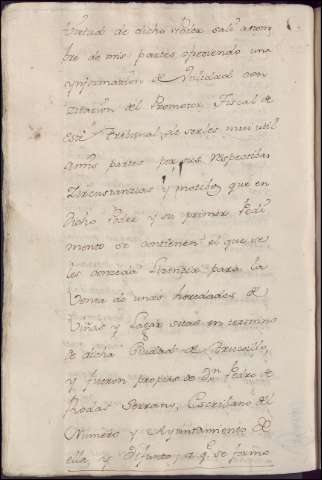 virtud de dicho poder salí a nom
bre de mis partes ofreciendo una
ynformazion de Vtilidad con
zitazion del Promotor Fiscal de
este Tribunal, de serles mui util
a mis partes por sus respectibas
Zircunstanzias y motibos que en
dicho Poder y su primer Pedi
mento se contienen el que se
les conzeda Lizenzia para la
Venta de unas heredades de
Viñas y Lagar sitas en termino
de dicha Ciudad de Truxillo,
y fueron propias de Dn. Pedro de
Rodas Serrano, Escribano del
Numero y Ayuntamiento de
ella, ya Difunto, a qe. se formo